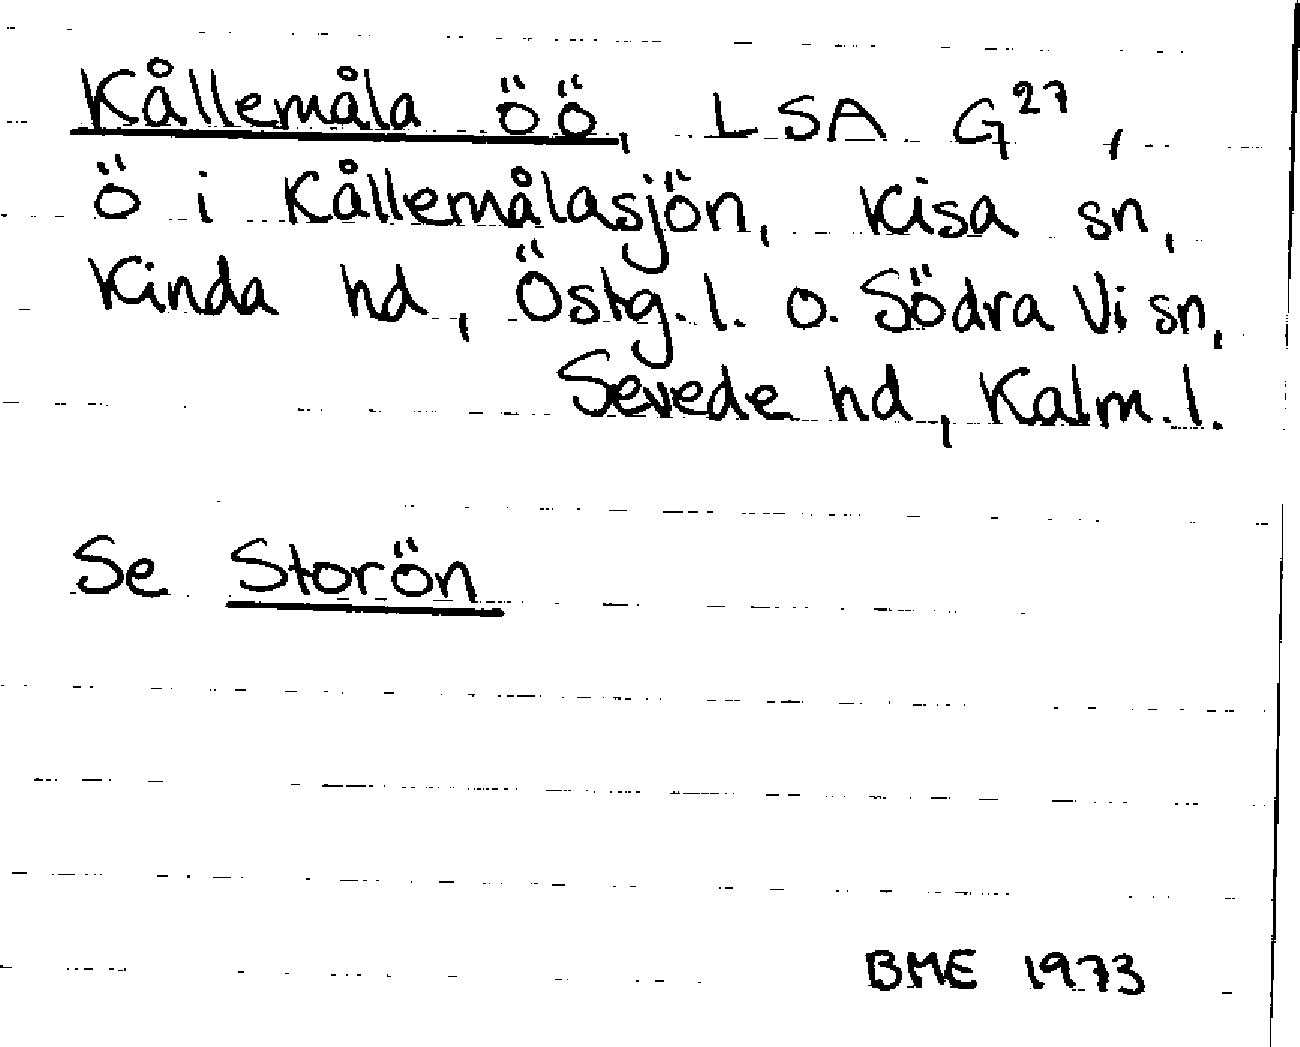 Kållemåla öö, LSA G27,
ö i Kållemålasjön, Kisa sn,
Kinda hd, Östg. l. o. Södra Vi sn,
Sevede hd, Kalm. l.
Se Storön
BME 1973